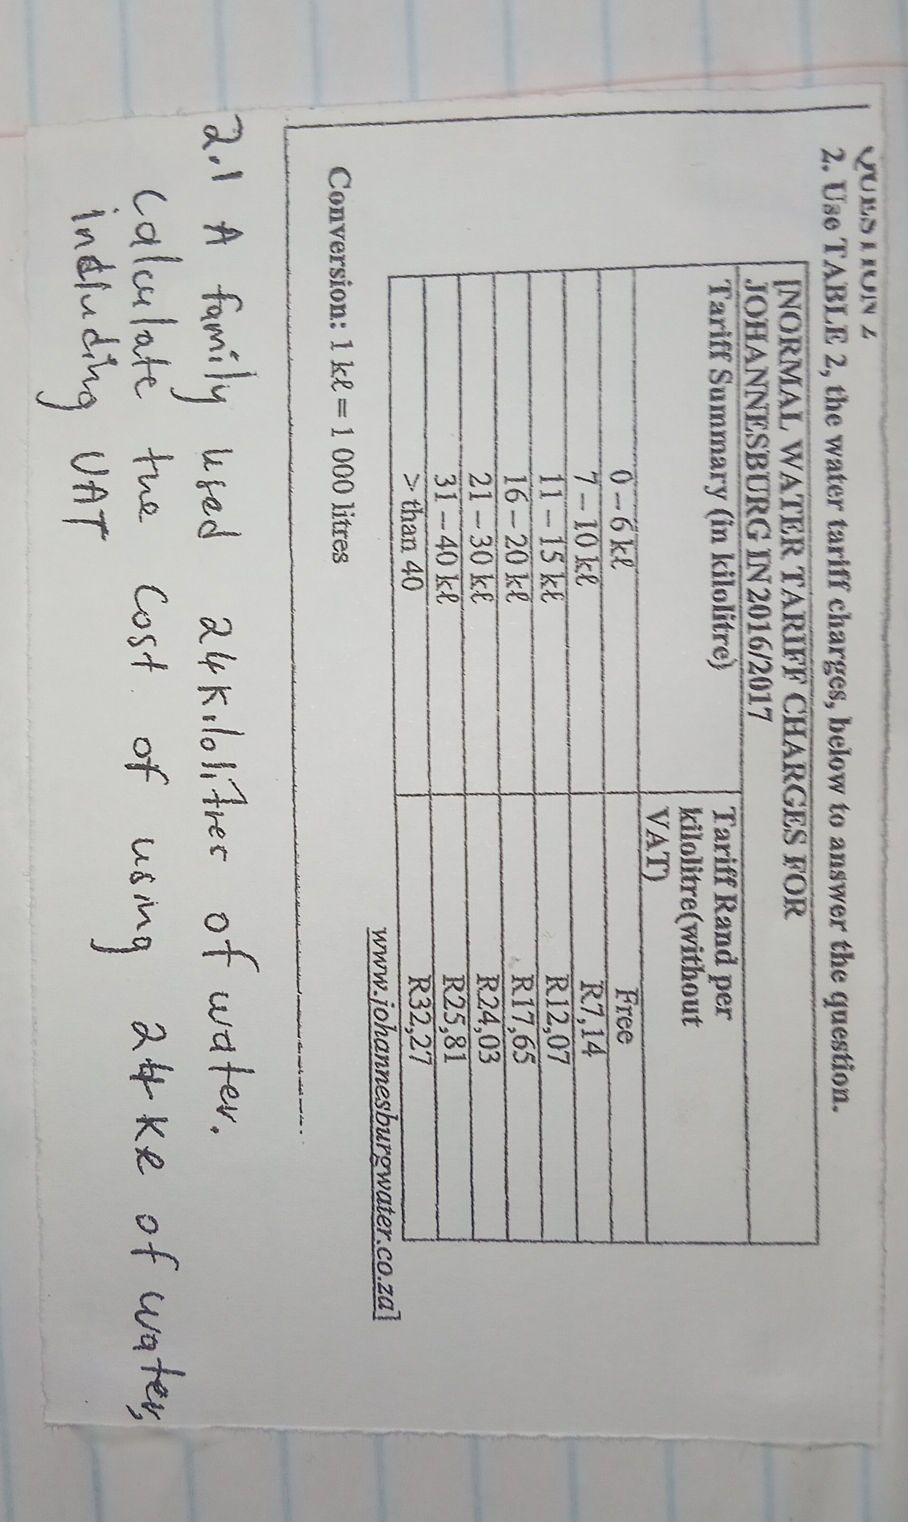 QUESTION 2
2. Use TABLE 2, the water tariff charges, below to answer the question.
[NORMAL WATER TARIFF CHARGES FOR
JOHANNESBURG IN 2016/2017
Tariff Summary (in kilolitre) Tariff Rand per
kilolitre(without
VAT)
0 – 6 kℓ Free
7 – 10 kℓ R7,14
11 – 15 kℓ R12,07
16 – 20 kℓ R17,65
21 – 30 kℓ R24,03
31 – 40 kℓ R25,81
> than 40 R32,27
www.johannesburgwater.co.za]
Conversion: 1 kℓ = 1 000 litres
2.1 A family used 24 kilolitres of water.
Calculate the cost of using 24 kℓ of water,
including VAT